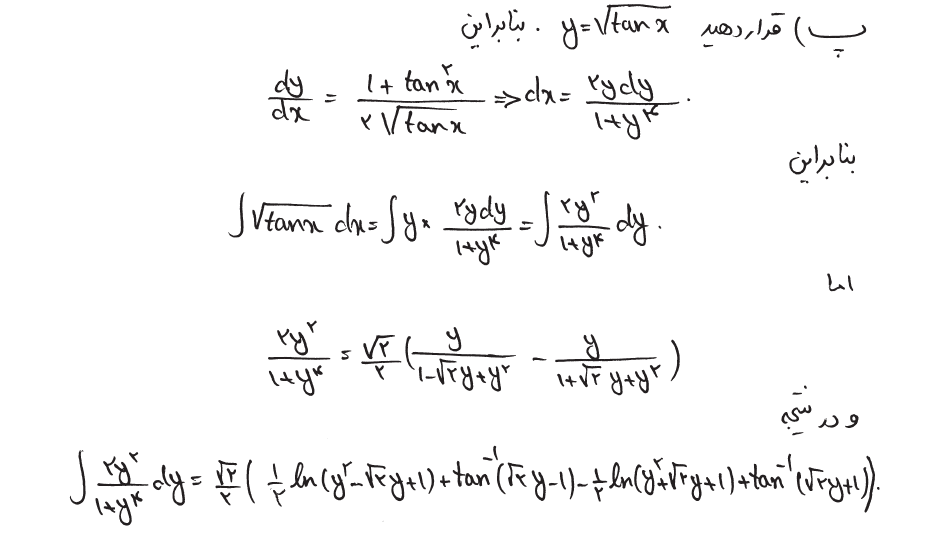 پ) قرار دهید y=√tanx . بنابراین
dy/dx = (۱ + tan^۲x)/(۲√tanx) => dx = ۲ydy/(۱+y^۴) .
بنابراین
∫√tanx dx = ∫y × ۲ydy/(۱+y^۴) = ∫۲y^۲/(۱+y^۴) dy .
اما
۲y^۲/(۱+y^۴) = √۲/۲ (y/(۱-√۲y+y^۲) - y/(۱+√۲y+y^۲))
و در نتیجه
∫۲y^۲/(۱+y^۴) dy = √۲/۲ ( ۱/۲ ln(y^۲-√۲y+۱)+tan^-۱(√۲y-۱)-۱/۲ ln(y^۲+√۲y+۱)+tan^-۱(√۲y+۱)).